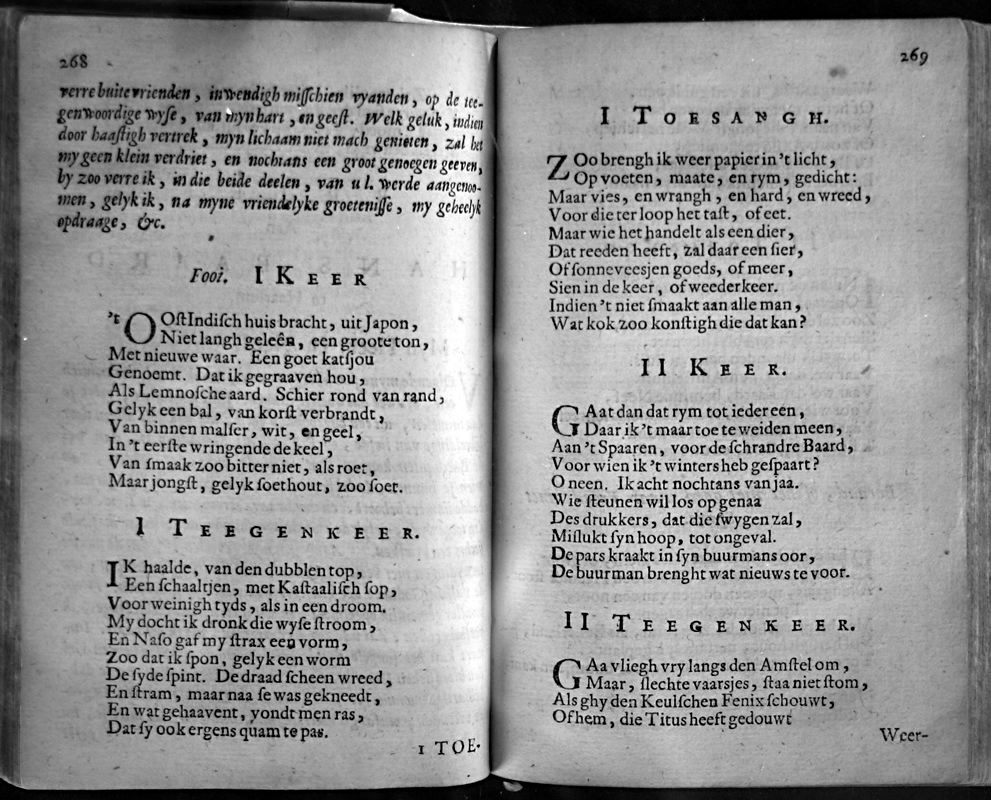 268
verre buite vrienden, inwendigh misschien vyanden, op de tee-
genwoordige wyse, van myn hart, en geest. Welk geluk, indien
door haastigh vertrek, myn lichaam niet mach genieten, zal het
my geen klein verdriet, en nochtans een groot genoegen geeven,
by zoo verre ik, in die beide deelen, van u l. werde aangenoo-
men, gelyk ik, na myne vriendelyke groetenisse, my geheelyk
opdraage, &c.
Fooi. I KEER
't OOstIndisch huis bracht, uit Japon,
Niet langh geleên, een groote ton,
Met nieuwe waar. Een goet katsjou
Genoemt. Dat ik gegraaven hou,
Als Lemnosche aard. Schier rond van rand,
Gelyk een bal, van korst verbrandt,
Van binnen malser, wit, en geel,
In 't eerste wringende de keel,
Van smaak zoo bitter niet, als roet,
Maar jongst, gelyk soethout, zoo soet.
I TEEGENKEER.
IK haalde, van den dubblen top,
Een schaaltjen, met Kastaalisch sop,
Voor weinigh tyds, als in een droom.
My docht ik dronk die wyse stroom,
En Naso gaf my strax een vorm,
Zoo dat ik spon, gelyk een worm
De syde spint. De draad scheen wreed,
En stram, maar naa se was gekneedt,
En wat gehaavent, vondt men ras,
Dat sy ook ergens quam te pas.
I TOE-
269
I TOESANGH.
ZOo brengh ik weer papier in 't licht,
Op voeten, maate, en rym, gedicht:
Maar vies, en wrangh, en hard, en wreed,
Voor die ter loop het tast, of eet.
Maar wie het handelt als een dier,
Dat reeden heeft, zal daar een sier,
Of sonneveesjen goeds, of meer,
Sien in de keer, of weederkeer.
Indien 't niet smaakt aan alle man,
Wat kok zoo konstigh die dat kan?
II KEER.
GAat dan dat rym tot ieder een,
Daar ik 't maar toe te weiden meen,
Aan 't Spaaren, voor de schrandre Baard,
Voor wien ik 't winters heb gespaart?
O neen. Ik acht nochtans van jaa.
Wie steunen wil los op genaa
Des drukkers, dat die swygen zal,
Mislukt syn hoop, tot ongeval.
De pars kraakt in syn buurmans oor,
De buurman brenght wat nieuws te voor.
II TEEGENKEER.
GAa vliegh vry langs den Amstel om,
Maar, slechte vaarsjes, staa niet stom,
Als ghy den Keulschen Fenix schouwt,
Of hem, die Titus heeft gedouwt
Weer-